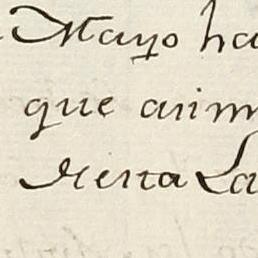 Mayo ha
que anim
derta La